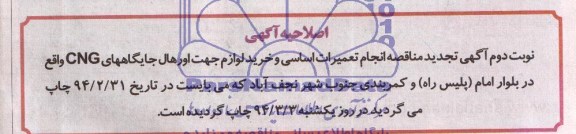 اصلاحیه آگهی
نوبت دوم آگهی تجدید مناقصه انجام تعمیرات اساسی و خرید لوازم جهت اورهال جایگاههای CNG واقع
در بلوار امام (پلیس راه) و کمربندی جنوب شهر نجف آباد که می بایست در تاریخ ۹۴/۲/۳۱ چاپ
می گردید در روز یکشنبه ۹۴/۳/۳ چاپ گردیده است.